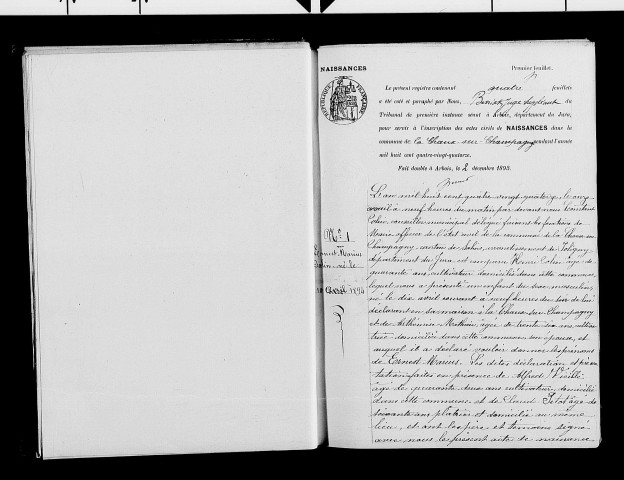 NAISSANCES
Premier feuillet.
Le présent registre contenant quatre feuillets
a été coté et paraphé par Nous, Juge suppléant du
Tribunal de première instance séant à Arbois, département du Jura,
pour servir à l'inscription des actes civils de NAISSANCES dans la
commune de La Chaux-sur-Champagny pendant l'année
mil huit cent quatre-vingt-quatorze.
Fait double à Arbois, le 2 décembre 1893.
RÉPUBLIQUE FRANÇAISE
No 1
Ernest Marius
Colin né le
10 Avril 1894
L'an mil huit cent quatre vingt quatorze le onze
avril à neuf heures du matin par devant nous Constant
Colin, conseiller municipal délégué faisant les fonctions de
Maire officier de l'état civil de la commune de la Chaux-sur
Champagny, canton de Salins, arrondissement de Poligny,
département du Jura, est comparu Henri Colin âgé de
quarante ans, cultivateur domicilié dans cette commune,
lequel nous a présenté un enfant du sexe masculin,
né le dix avril courant à neuf heures du soir de lui
déclarant en sa maison à la Chaux-sur-Champagny
et de Mathieu, âgée de trente six ans cultiva
trice domiciliée dans cette commune son épouse, et
auquel il a déclaré vouloir donner les prénoms
de Ernest Marius. Les dites déclaration et présen
tation faites en présence de Alfred
âgé de quarante deux ans cultivateur, domicilié
dans cette commune et de Claude âgé de
soixante ans, et domicilié au même
lieu, et ont les père et témoins signé
avec nous le présent acte de naissance